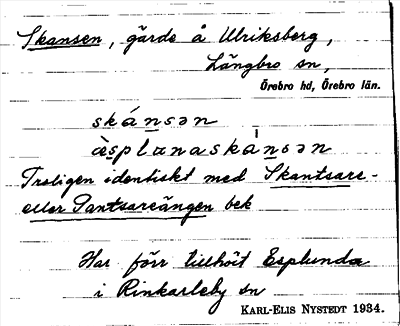 Skansen, gärde å Ulriksberg,
Längbro sn,
Örebro hd, Örebro län.
skánsən
àsplɑnaskànsən
Troligen identiskt med Skantsare-
eller Pantsareängen bek
Har förr tillhört Esplunda
i Rinkarleby sn
KARL-ELIS NYSTEDT 1934.